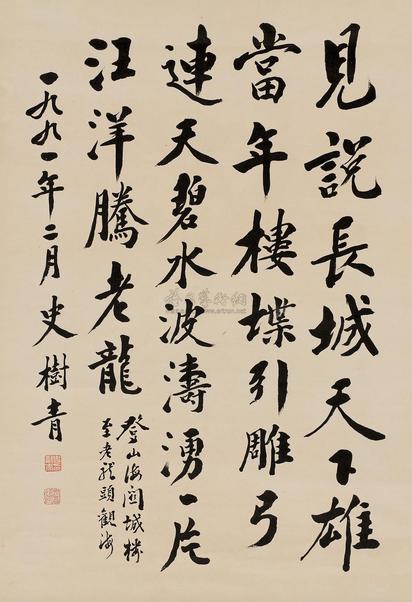 見說長城天下雄
當年樓堞引雕弓
連天碧水波濤湧一片
汪洋騰老龍
登山海關城樓
至老龍頭觀海
一九九一年二月史樹青